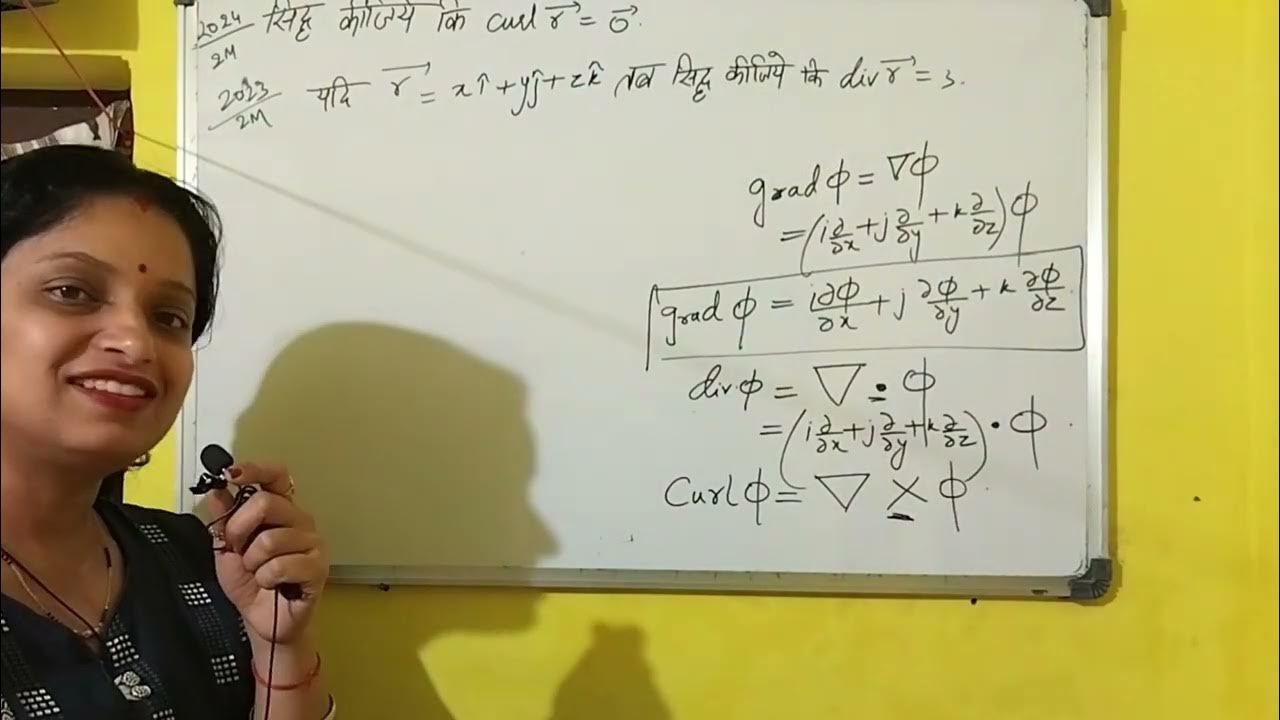 2024 सिद्ध कीजिये कि curl r⃗ = 0⃗.
2M
2023 यदि r⃗ = xî + yĵ + zk̂ तब सिद्ध कीजिये कि div r⃗ = 3.
2M
grad ϕ = ∇ϕ
= (i ∂/∂x + j ∂/∂y + k ∂/∂z) ϕ
grad ϕ = i ∂ϕ/∂x + j ∂ϕ/∂y + k ∂ϕ/∂z
div ϕ = ∇ • ϕ
= (i ∂/∂x + j ∂/∂y + k ∂/∂z) • ϕ
Curl ϕ = ∇ × ϕ